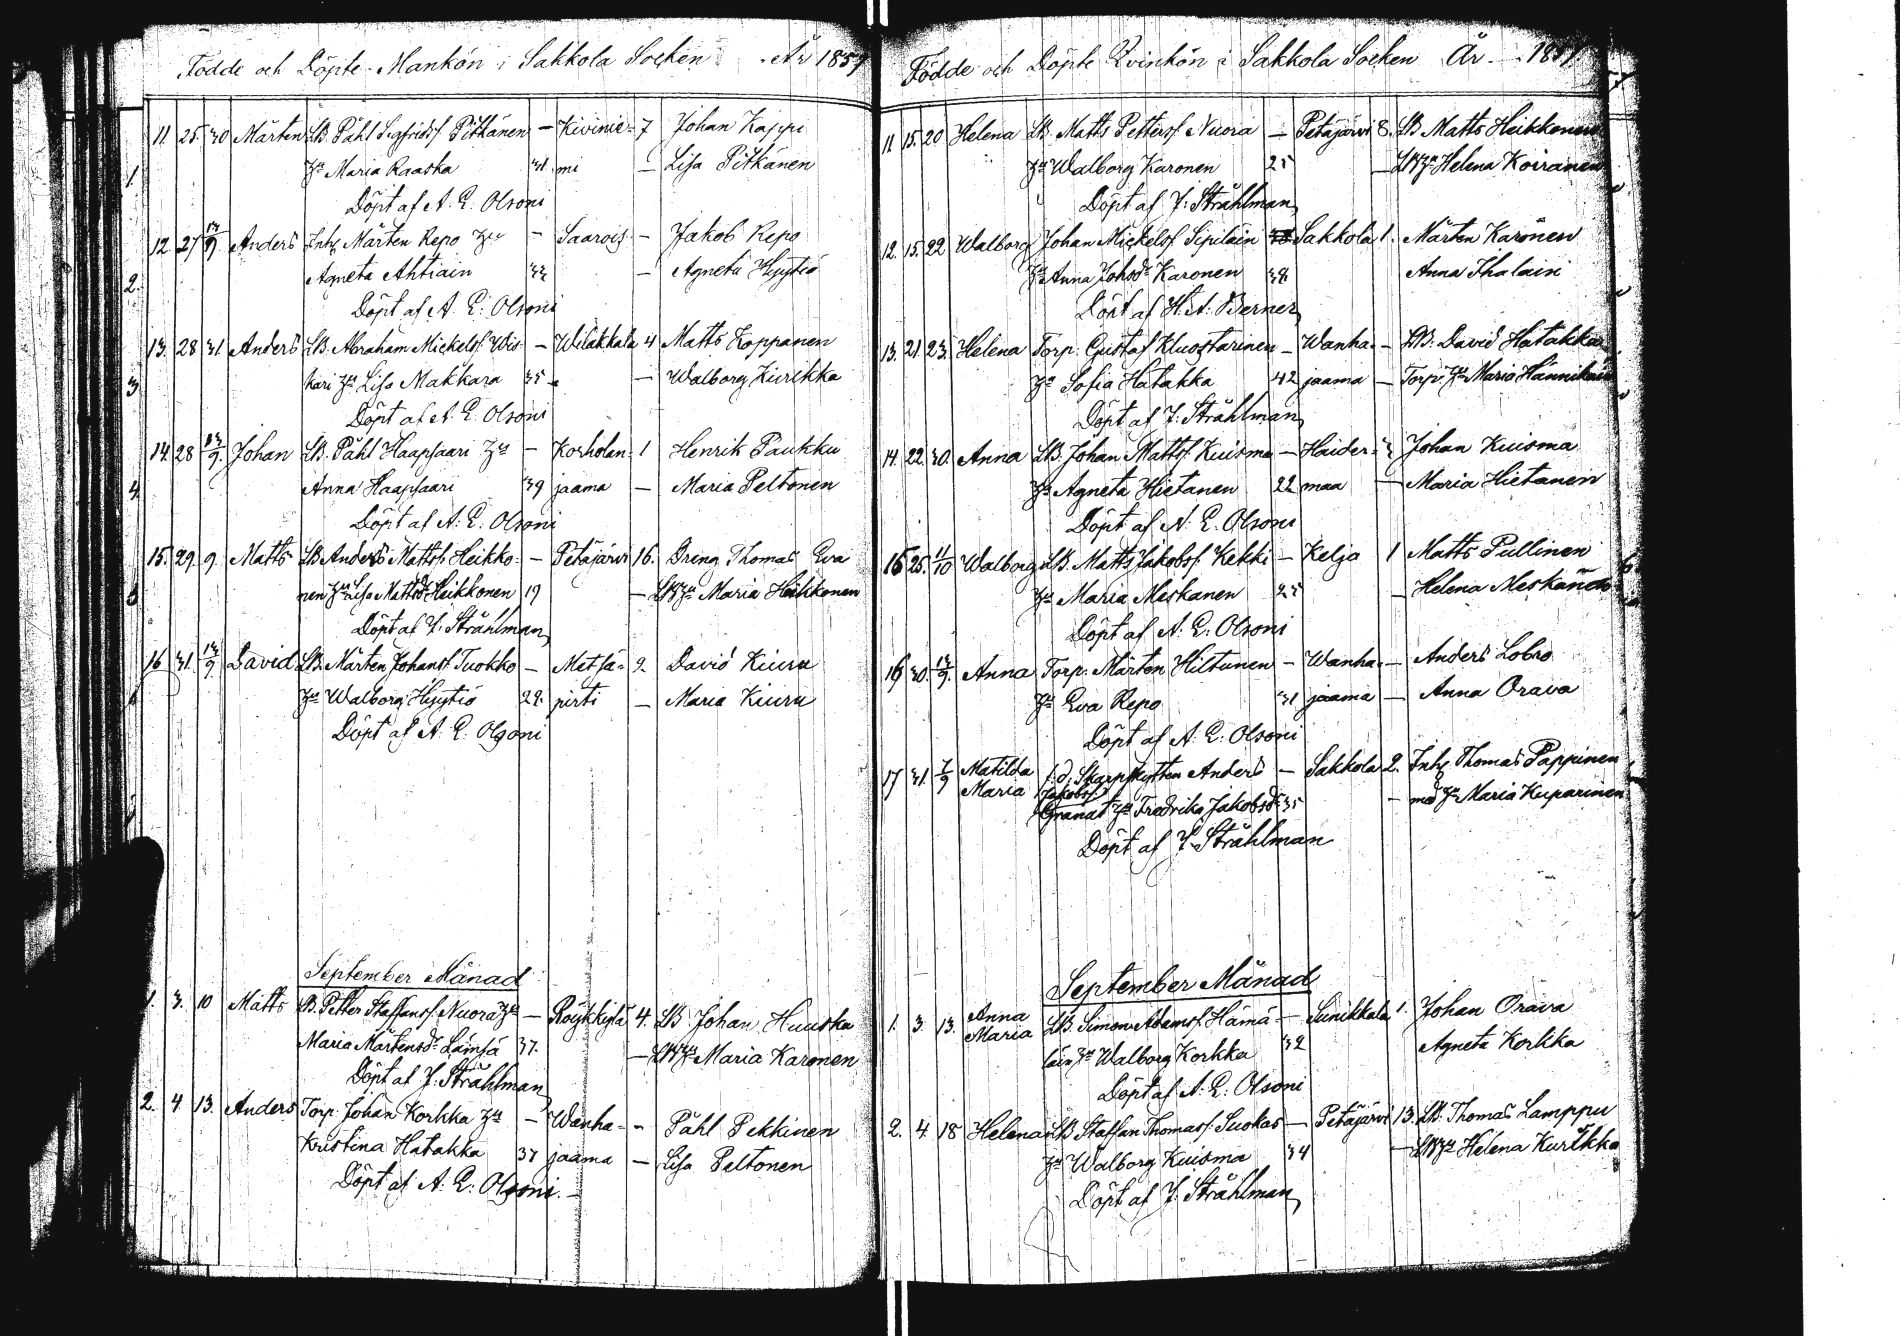 Födde och Döpte Mankön i Sakkola Socken År 1857
11. 25. 30 Mårten LB. Påhl Sigfridsf. Pitkänen – Kivinie- 7 Johan Kappi
Hu Maria Raaska 31. mi – Lisa Pitkänen
1. Döpt af A. E. Olsoni
12 27 13/9 Anders Inh. Mårten Repo Hu – Saarois. – Jakob Repo
Agneta Ahtiain 33 – Agneta Hyytiä
2. Döpt af A. E: Olsoni
13. 28 31. Anders LB. Abraham Mickelsf. Wis- – Wilakkala 4 Matts Koppanen
kari Hu Lisa Makkara 35 – Walborg Kurikka
3. Döpt af A. E. Olsoni
14. 28 13/9. Johan LB. Påhl Haapsaari Hu – Korholan- 1 Henrik Paukku
Anna Haapsaari 39 jaama – Maria Peltonen
4. Döpt af A. E. Olsoni
15. 29. 9. Matts LB. Anders Mattsf. Heikko- – Petäjärvi 16. Dreng Thomas Eva
nen Hu Lisa Mattsd. Heikkonen 19 – Maria Heikkonen
Döpt af J. Stråhlman
16 31. 13/9 David LB. Mårten Johansf. Tuokko – Metsä= 2 David Kiuru
Hu Walborg Hyytiä 22. pirti – Maria Kiuru
Döpt af A. E. Olsoni
September Månad
1. 3. 10 Matts LB. Petter Staffansf. Nuora Hu – Röykkylä 4. LB Johan Huuska
Maria Mårtensdr. Lämsä 37. – Maria Karonen
Döpt af J. Stråhlman
2. 4 13. Anders Torp. Johan Korkka Hu – Wanha- – Påhl Pekkinen
Kristina Hatakka 37 jaama – Lisa Peltonen
Döpt af A. E. Olsoni. –
Födde och Döpte Qvinkön i Sakkola Socken År 1857
11. 15. 20 Helena LB. Matts Pettersf. Nuora – Petäjärvi 8. LB Matts Heikkonen
Hu Walborg Karonen 25 – Helena Koiranen
Döpt af J. Stråhlman
12. 15. 22 Walborg Johan Mickelsf. Sipiläin Sakkola 1. Mårten Karonen
Hu Anna Johsdr. Karonen 38 Anna Ihalain
Döpt af H. A. Berner
13. 21. 23. Helena Torp. Gustaf Kluostarinen – Wanha- – LB. David Hatakka
Hu Sofia Hatakka 42 jaama – Torp. Hu Maria Hännikäin
Döpt af J. Stråhlman
14. 22. 30. Anna LB. Johan Mattsf. Kuisma – Haider- 3 Johan Kuisma
Hu Agneta Hietanen 22 maa – Maria Hietanen
Döpt af A. E. Olsoni
15 25. 11/10 Walborg LB. Matts Jakobsf. Kekki – Kelja 1 Matts Pullinen
Hu Maria Meskanen 25 – Helena Meskanen
Döpt af A. E: Olsoni
16 30. 13/9. Anna Torp. Mårten Hiltunen – Wanha- – Anders Lobro
Hu Eva Repo 31 jaama – Anna Orava
Döpt af A. E: Olsoni
17 31. 7/9 Matilda f.d. Skarpskytten Anders – Sakkola 2. Inh. Thomas Pappinen
Maria Jakobsf. – med Hu Maria Kuparinen
Granat Hu Fredrika Jakobsdr. 35
Döpt af J. Stråhlman
September Månad
1. 3. 13. Anna LB. Simon Adamsf. Hämä- – Sunikkala 1. Johan Orava
Maria läin Hu Walborg Korkka 32 Agneta Korkka
Döpt af A. E: Olsoni
2. 4. 18 Helena LB Staffan Thomasf. Suokas – Petäjärvi 13. LB. Thomas Lamppu
Hu Walborg Kuisma 34 – Helena Kurikka
Döpt af J. Stråhlman